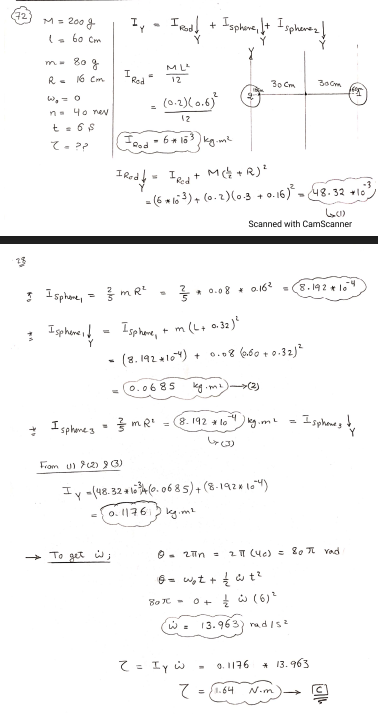 72
M = 200 g
l = 60 cm
m = 80 g
R = 16 cm
ω₀ = 0
n = 40 rev
t = 6 s
τ = ??
I_Y = I_Rod ↓_Y + I_sphere₁ ↓_Y + I_sphere₂ ↓_Y
I_Rod = ML²/12
= (0.2)(0.6)²/12
I_Rod = 6*10⁻³ kg.m²
Y
30 cm 30 cm
I_Rod ↓_Y = I_Rod + M(L/2 + R)²
= (6*10⁻³) + (0.2)(0.3 + 0.16)² = 48.32 *10⁻³
→ (1)
Scanned with CamScanner
* I_sphere₁ = 2/5 m R² = 2/5 * 0.08 * 0.16² = 8.192 *10⁻⁴
* I_sphere₁ ↓_Y = I_sphere₁ + m(L + 0.32)²
= (8.192*10⁻⁴) + 0.08 (0.60 + 0.32)²
= 0.0685 kg.m² → (2)
* I_sphere₃ = 2/5 m R² = 8.192 *10⁻⁴ kg.m² = I_sphere₃ ↓_Y
→ (3)
From (1) & (2) & (3)
I_Y = (48.32*10⁻³) + (0.0685) + (8.192*10⁻⁴)
= 0.1176 kg.m²
→ To get ω̇;
θ = 2πn = 2π(40) = 80π rad
θ = ω₀t + 1/2 ω̇ t²
80π = 0 + 1/2 ω̇ (6)²
ω̇ = 13.963 rad/s²
τ = I_Y ω̇ = 0.1176 * 13.963
τ = 1.64 N.m → C